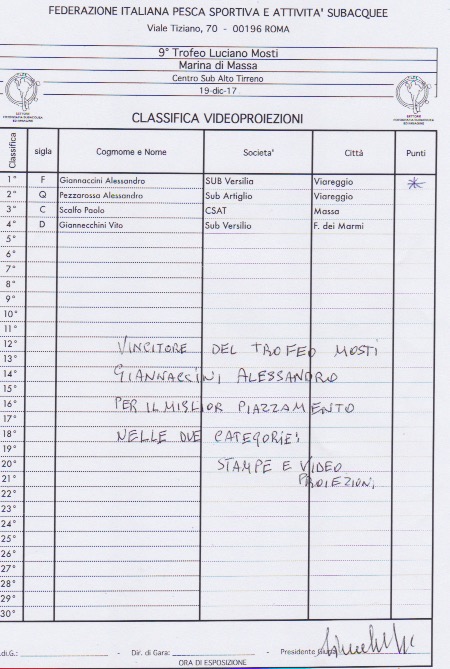 FEDERAZIONE ITALIANA PESCA SPORTIVA E ATTIVITA' SUBACQUEE
Viale Tiziano, 70 - 00196 ROMA
9° Trofeo Luciano Mosti
Marina di Massa
Centro Sub Alto Tirreno
19-dic-17
SETTORE
SETTORE
CLASSIFICA VIDEOPROIEZIONI
Classifica sigla Cognome e Nome Societa' Città Punti
1° F Giannaccini Alessandro SUB Versilia Viareggio *
2° Q Pezzarossa Alessandro Sub Artiglio Viareggio
3° C Scalfo Paolo CSAT Massa
4° D Giannecchini Vito Sub Versilio F. dei Marmi
5°
6°
7°
8°
9°
10°
11°
12° VINCITORE DEL TROFEO MOSTI
13°
14° GIANNACCINI ALESSANDRO
15°
16° PER IL MIGLIOR PIAZZAMENTO
17°
18° NELLE DUE CATEGORIE:
19°
20° STAMPE E VIDEO
21° PROIEZIONI
22°
23°
24°
25°
26°
27°
28°
29°
30°
di G.: - Dir. di Gara: - Presidente
ORA DI ESPOSIZIONE